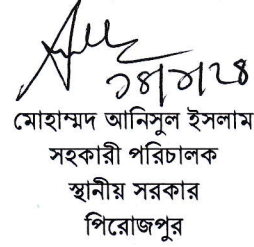 ১৪/১/২৪
মোহাম্মদ আনিসুল ইসলাম
সহকারী পরিচালক
স্থানীয় সরকার
পিরোজপুর